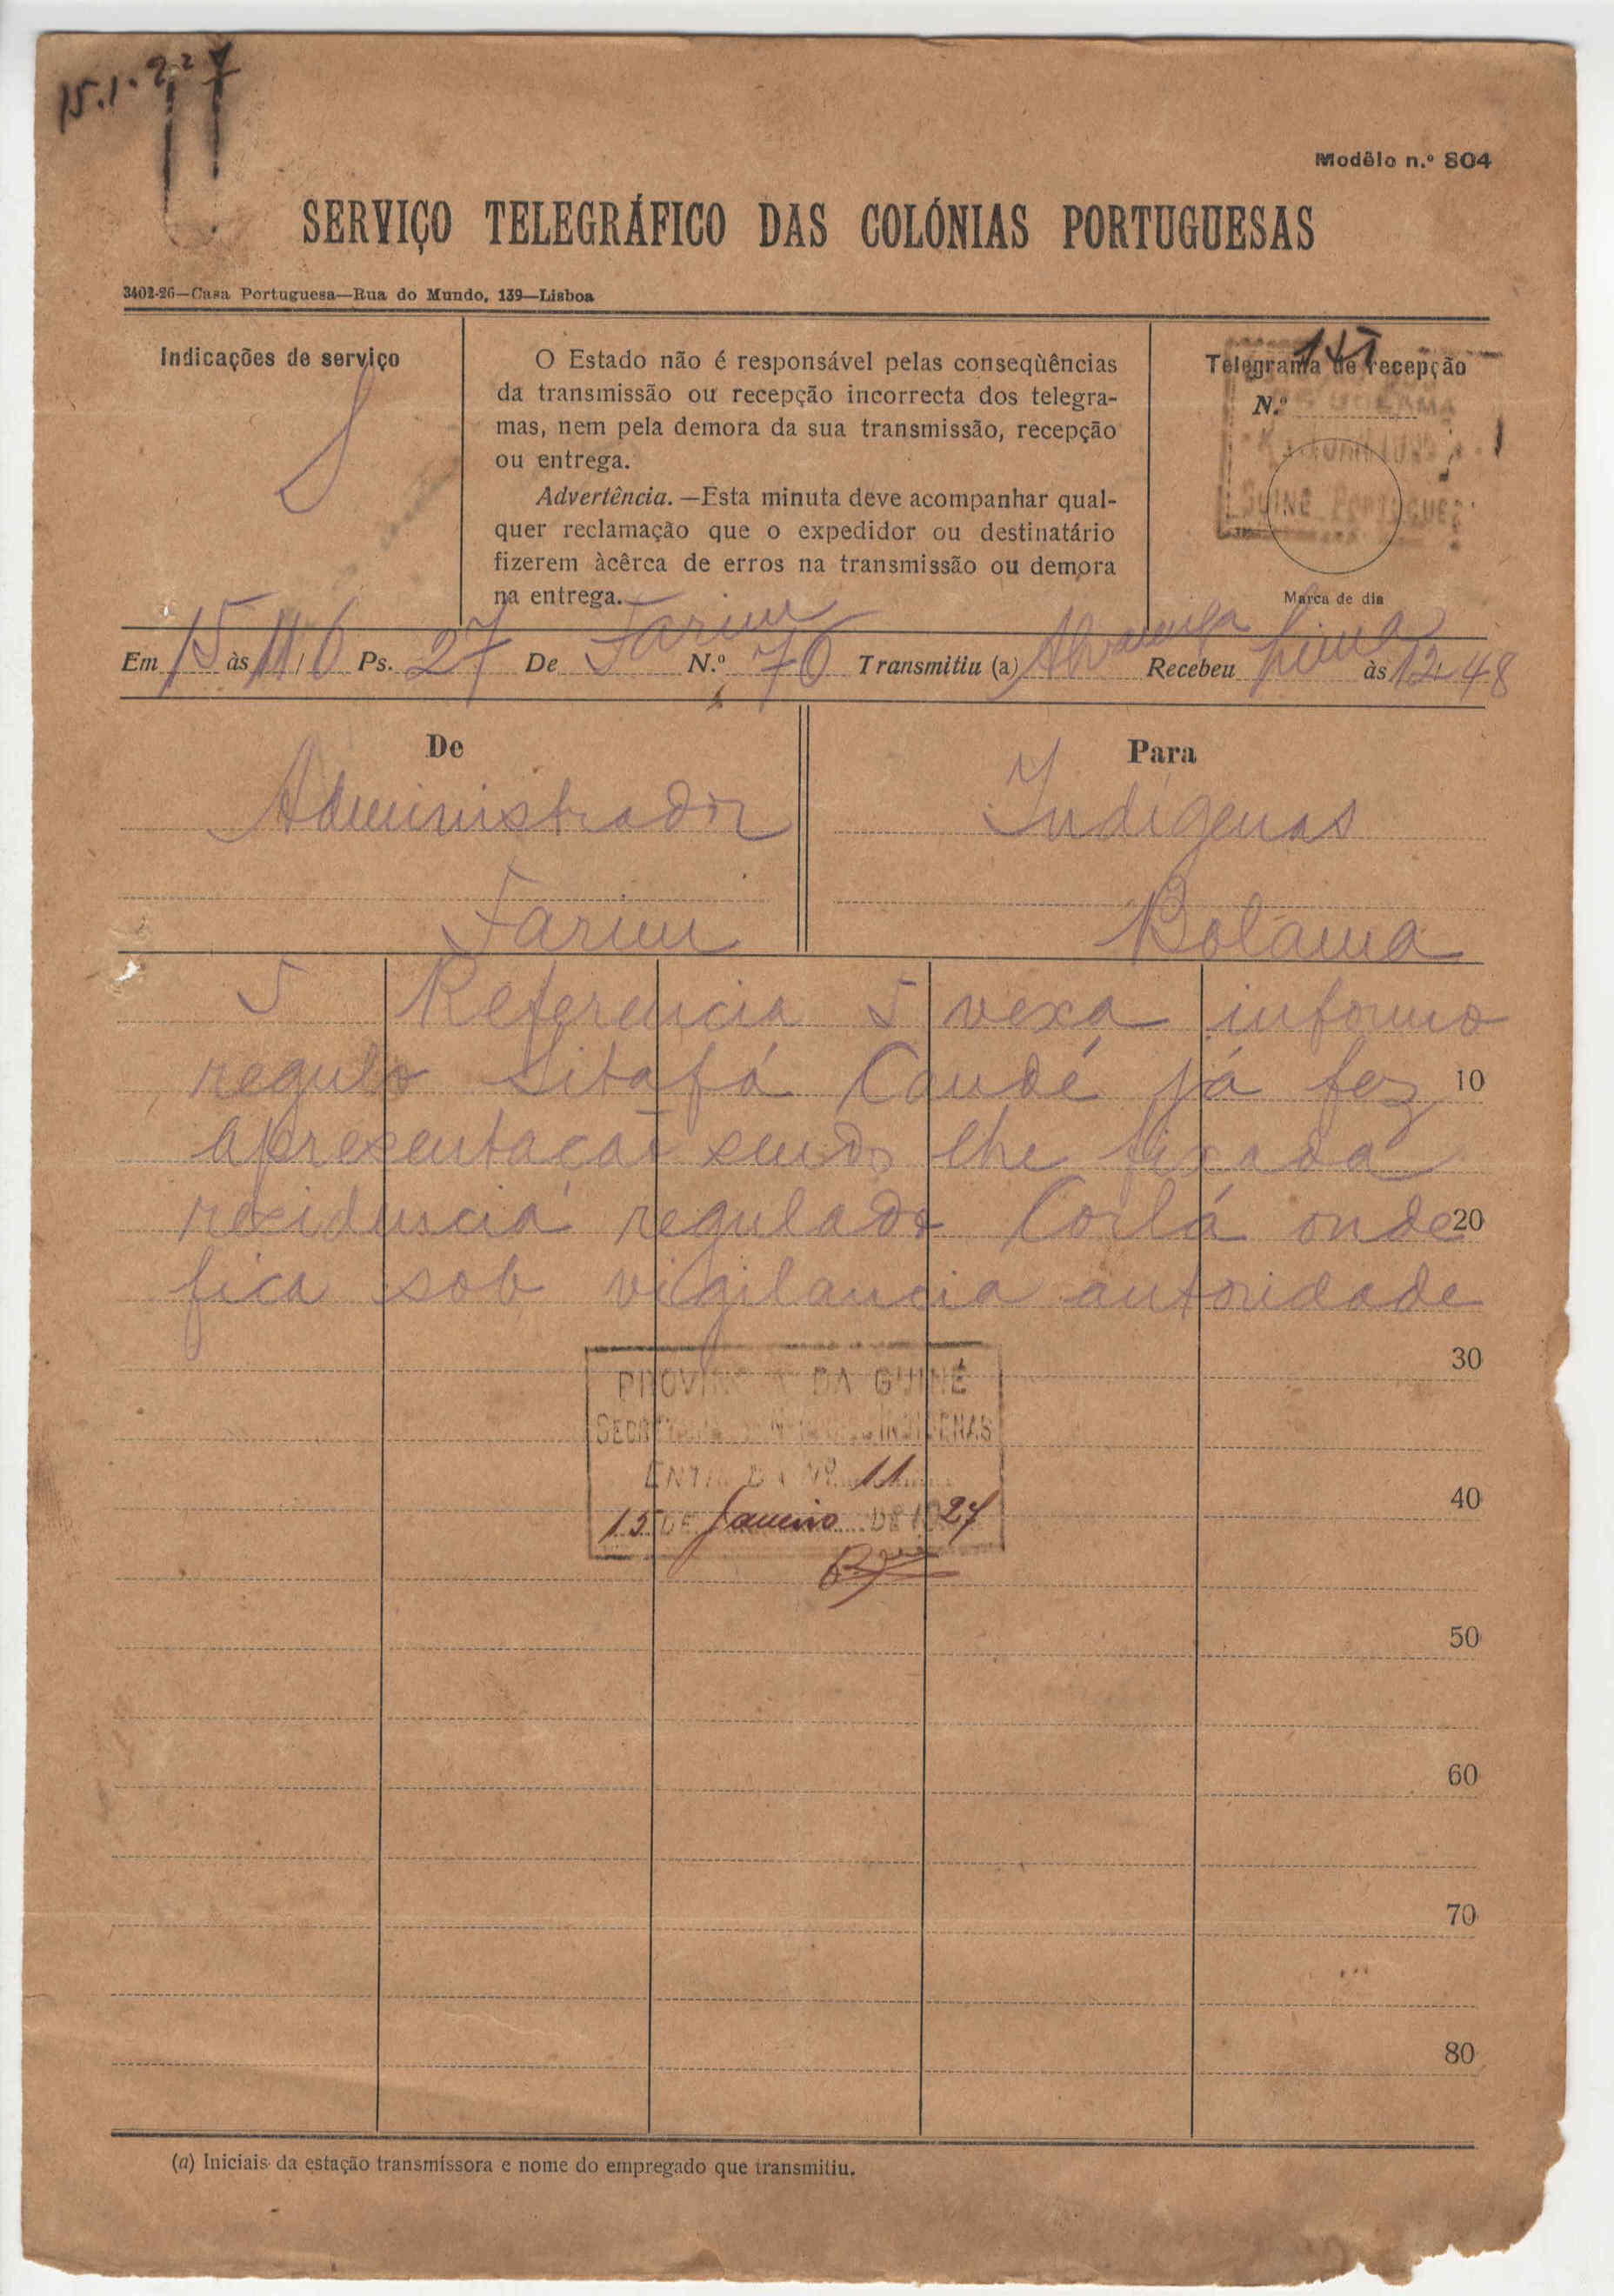 15.1.927
Modêlo n.º 804
SERVIÇO TELEGRÁFICO DAS COLÓNIAS PORTUGUESAS
3402-26—Casa Portuguesa—Rua do Mundo, 139—Lisboa
Indicações de serviço
S
O Estado não é responsável pelas conseqùências
da transmissão ou recepção incorrecta dos telegra-
mas, nem pela demora da sua transmissão, recepção
ou entrega.
Advertência.—Esta minuta deve acompanhar qual-
quer reclamação que o expedidor ou destinatário
fizerem àcêrca de erros na transmissão ou demora
na entrega.
Telegrama de recepção
N.º
BOLAMA
GUINÉ PORTUGUESA
Marca de dia
Em 15 às 11/6 Ps. 27 De Farim N.º 70 Transmitiu (a) Recebeu Lima às 12,48
De
Administrador
Farim
Para
Indigenas
Bolama
5 Referencia 5 vexa informo
regulo Sitafá Caudé já fez 10
apresentação sendo lhe fixada
residencia regulado Corlá onde 20
fica sob vigilancia autoridade
30
PROVINCIA DA GUINÉ
SECRETARIA DOS NEGOCIOS INDIGENAS
ENTRADA Nº 11
15 DE Janeiro DE 1927
40
50
60
70
80
(a) Iniciais da estação transmissora e nome do empregado que transmitiu.